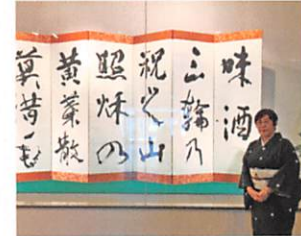 味酒
三輪乃
祝之山
照秋乃
黄葉散
莫惜毛